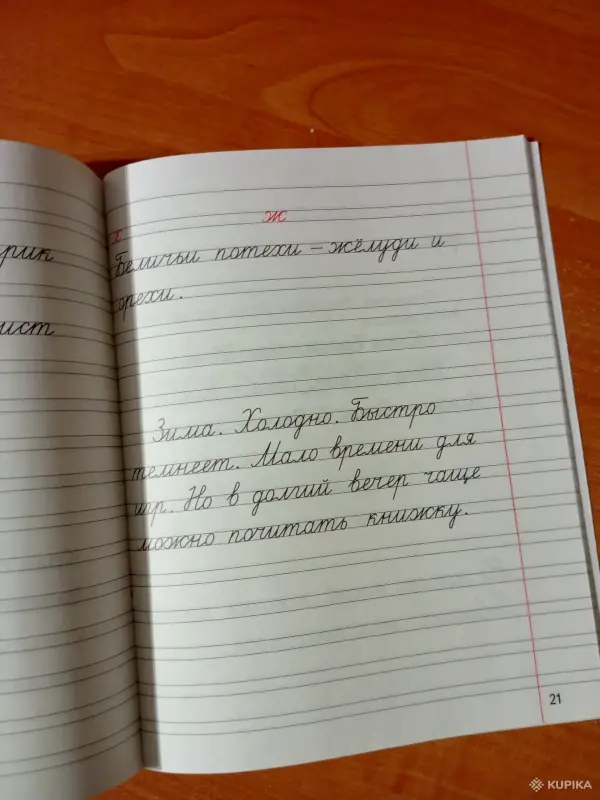 рик
ист
х ж
Беличьи потехи – жёлуди и
орехи.
Зима. Холодно. Быстро
темнеет. Мало времени для
игр. Но в долгий вечер чаще
можно почитать книжку.
21
KUPIKA